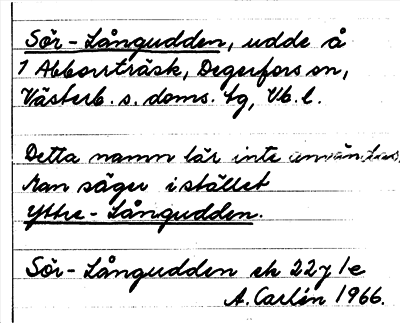 Sör-Långudden, udde å
1 Abborrträsk, Degerfors sn,
Västerb. s. doms. tg, Vb. l.
Detta namn lär inte användas.
Man säger i stället
Yttre-Långudden.
Sör-Långudden ek 22y 1e
A. Carlén 1966.